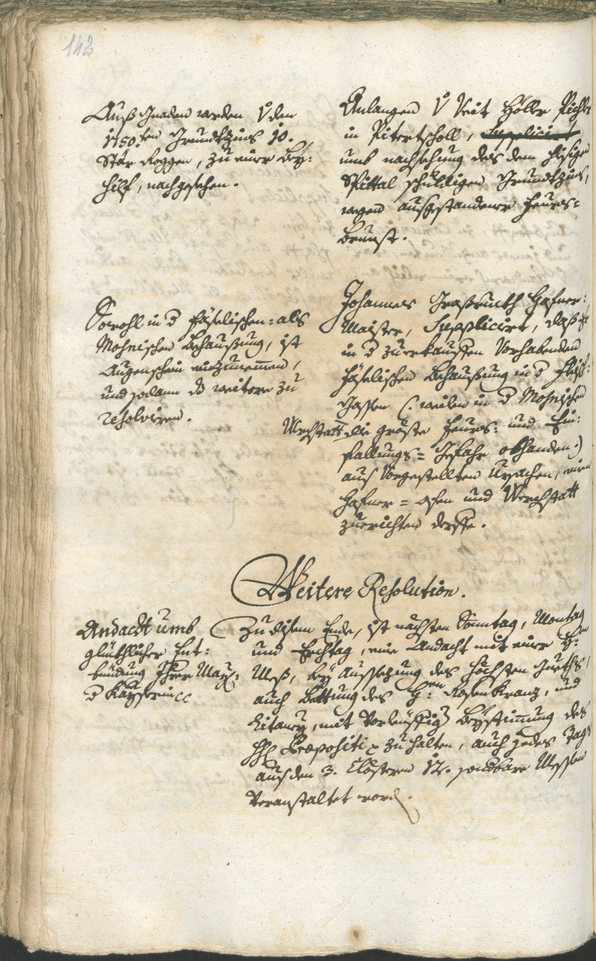 142
Auß Gnaden werden V den
1750.ten Grundtzins 10.
Stär Roggen, zu einer Bey:
hilf, nachgesehen.
Anlangen V Veit Höller Pichler
in Pitertschöll,
umb nachsehung des dem hiesigen
Spittal schuldigen Grundtzins,
wegen außgestandener Feurs:
brunst.
Sowohl in d Häselischen: als
Mohnischen Behaußung, ist
Augenschein einzunemen,
und sodann dz weitere zu
resolviren.
Johannes Großrueth Hafner:
Maister, Supplicirt, daß er
in d zuerkauffen vorhabenden
Häselischen Behaußung in d
Gassen (: weilen in d Mohnischen
Werchstatt die gröste Feurs: und Ein:
fallungs= Gefahr obhanden :)
auß vorgestellten Ursachen, einen
Hafner= Ofen und Werchstatt
zuerichten derffe.
Weitere Resolution.
Andacht umb
glückhlicher Ent:
bindung Ihro May:
d Kayserin
Zu disem Ende, ist nächsten Sonntag, Montag
und Erchtag, eine Andacht mit einer H:
Meß, bey Außsezung des Höchsten Guetts,
auch Bettung des H: Rosenkranz, und
Litaney, mit vorleüffig Beystimmung des
Hl Præpositi zu halten, auch jedes Tags
auß den 3. Clöstern 12. Messen
veranstaltet word.